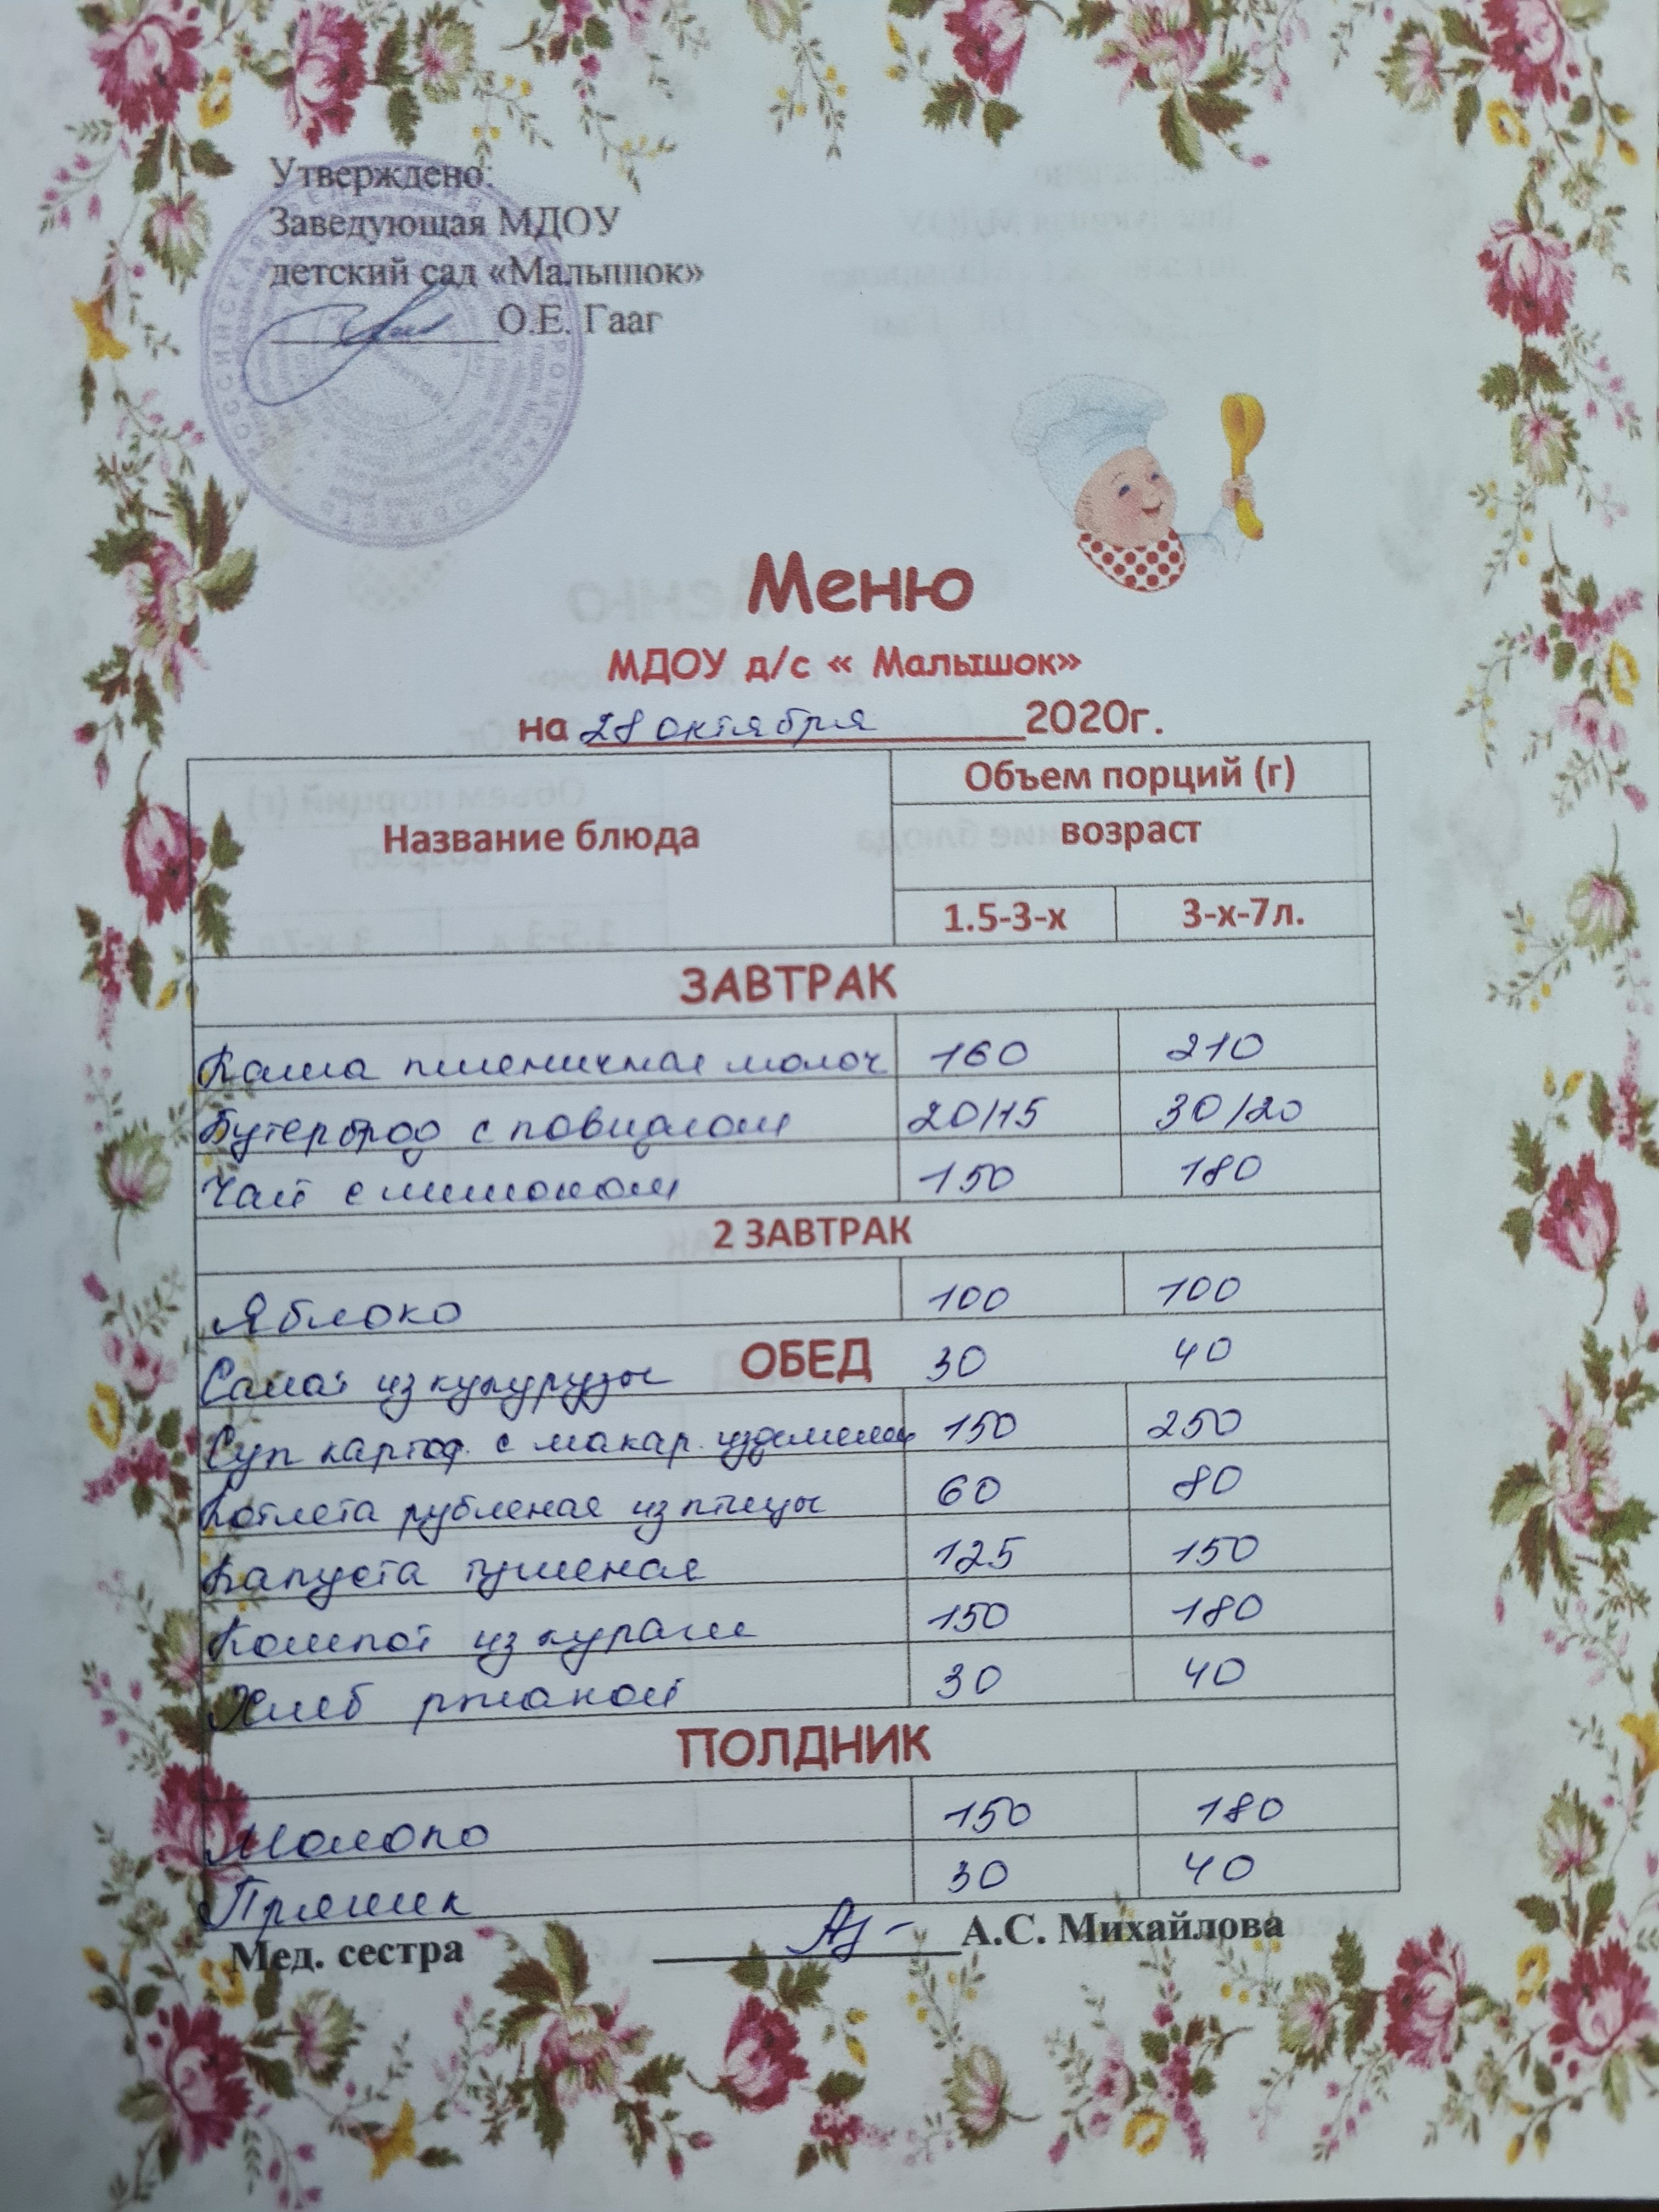 Утверждено:
Заведующая МДОУ
детский сад «Малышок»
О.Е. Гааг
Меню
МДОУ д/с « Малышок»
на 28 октября 2020г.
Название блюда
Объем порций (г)
возраст
1.5-3-х 3-х-7л.
ЗАВТРАК
Каша пшеничная молоч 160 210
Бутерброд с повидлом 20/15 30/20
Чай с лимоном 150 180
2 ЗАВТРАК
Яблоко 100 100
ОБЕД
Салат из кукурузы 30 40
Суп картоф. с макар. изделиями 150 250
Котлета рубленая из птицы 60 80
Капуста тушеная 125 150
Компот из кураги 150 180
Хлеб ржаной 30 40
ПОЛДНИК
Молоко 150 180
Пряник 30 40
Мед. сестра А.С. Михайлова